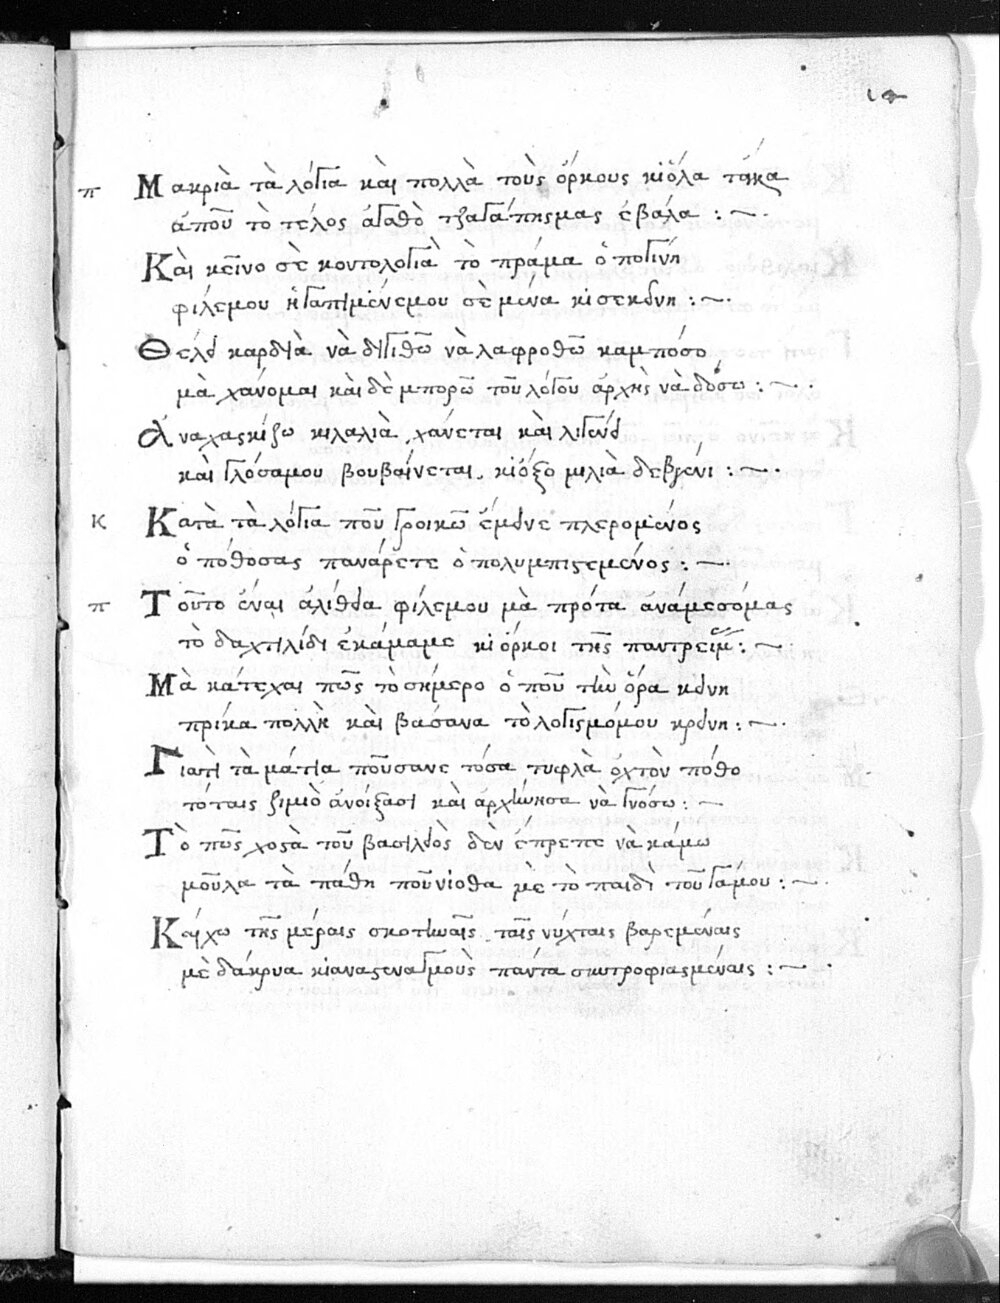 ια
π Μακριὰ τὰ λόγια κὰι πολλὰ τοὺς ὅρκους κιὅλα τἄκα
ἀποῦ τὸ τέλος ἀγαθὸ τζαγάπησμας ἐβάλα : ~ ·
Κὰι κεῖνο σὲ κοντολογιὰ τὸ πράμα ὁ πογίνη
φίλεμου ἠγαπιμένεμου σὲ μένα κισεκείνη : ~ ·
Θέλει καρδιὰ νὰ διγιθῶ νὰ λαφροθῶ καμπόσο
μὰ χάνομαι κὰι δὲ μπορῶ τοῦ λόγου ἀρχὴς νὰ δόσω : ~ ·
Ἀναχασκίζω κιλαλιὰ χάνεται κὰι λιγένει
κὰι γλόσαμου βουβαίνεται κιὄξο μιλιὰ δεβγένι : ~ ·
κ Κατὰ τὰ λόγια ποῦ γροικῶ ἔμεινε πλερομένος
ὁ πόθοσας πανάρετε ὁ πολυμπιστεμένος : ~ ·
π Τοῦτο ἔναι ἀλίθεια φίλεμου μὰ πρότα ἀνάμεσόμας
τὸ δαχτιλίδι ἐκάμαμε κι ὅρκοι τῆς παντρειᾶμ : ~ ·
Μὰ κάτεχαι πῶς τὸ σήμερο ὁ ποῦ τὴν ὅρα κείνη
πρίκα πολλὴ κὰι βάσανα τὸ λογισμόμου κρίνη : ~ ·
Γιατὶ τὰ μάτια ποῦσανε τόσα τυφλὰ ὀχτὸν πόθο
τόταις ζιμιὸ ἀνοίξασι κὰι ἀρχίνησα νὰ γνόσω : ~
Τὸ πῶς χοστὰ τοῦ βασιλειὸς δὲν ἔπρεπε νὰ κάμω
μοῦλα τὰ πάθη ποῦνιοθα μὲ τὸ παιδὶ τοῦ γάμου : ~ ·
Κάιχω τῆς μέραις σκοτιναῖς ταῖς νύχταις βαρεμέναις
μὲ δάκρυα κιαναστεναγμοὺς πάντα σκυτροφιασμέναις : ~ ·